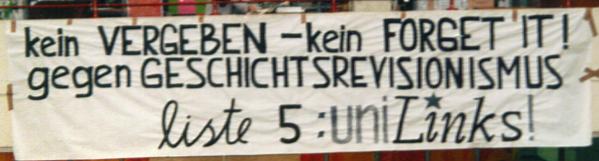 kein VERGEBEN – kein FORGET IT!
gegen GESCHICHTSREVISIONISMUS
liste 5 :uniLinks!